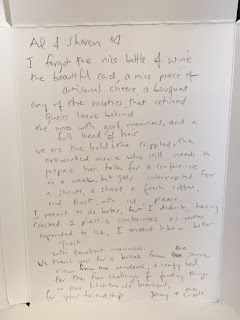 Al & Sharon ♡
I forgot the nice bottle of wine
the beautiful card, a nice piece of
artisanal cheese a bouquet
any of the niceties that refined
guests leave behind
the ones with good manners, and a
full head of hair
we are the bald the crippled, the
overworked nurse who still needs to
prepare her talk for a conference
in a week, but gets interrupted for
a shower, & shave & fresh
and  with ice, please
I meant to do better, but I didn't, having
cracked 2 plastic containers as water
expanded to ice, I meant to be a better
guest
with excellent manners.
We thank you for a break from the same
view from our windows, a comfy bed
for the fun challenge of finding things
in your kitchen, so beautiful,
for your friendship